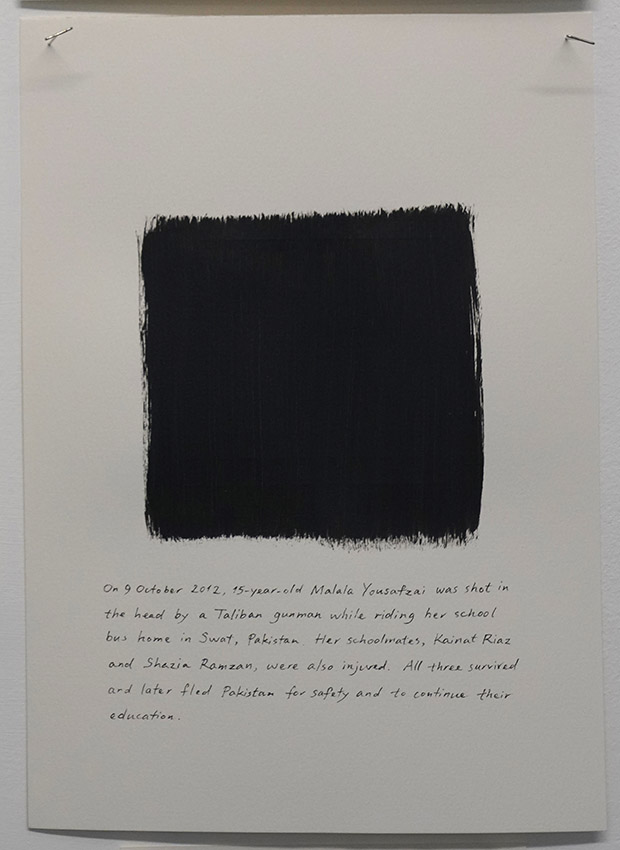 On 9 October 2012, 15-year-old Malala Yousafzai was shot in
the head by a Taliban gunman while riding her school
bus home in Swat, Pakistan. Her schoolmates, Kainat Riaz
and Shazia Ramzan, were also injured. All three survived
and later fled Pakistan for safety and to continue their
education.